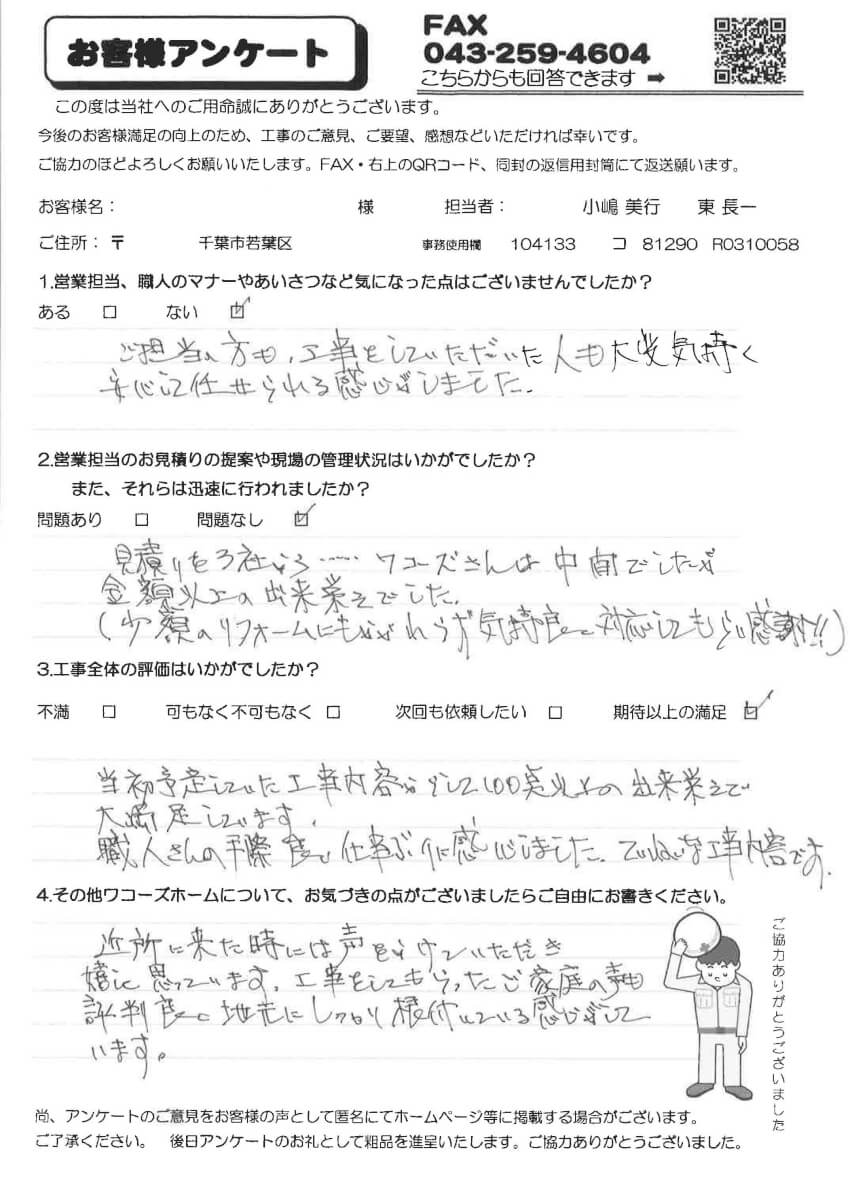 お客様アンケート
FAX
043-259-4604
こちらからも回答できます ➡
この度は当社へのご用命誠にありがとうございます。
今後のお客様満足の向上のため、工事のご意見、ご要望、感想などいただければ幸いです。
ご協力のほどよろしくお願いいたします。FAX・右上のQRコード、同封の返信用封筒にて返送願います。
お客様名： 様 担当者： 小嶋 美行 東 長一
ご住所：〒 千葉市若葉区 事務使用欄 104133 コ 81290 R0310058
1.営業担当、職人のマナーやあいさつなど気になった点はございませんでしたか？
ある □ ない ☑
ご担当の方も、工事をしていただいた人も大変気持く
安心して任せられる感じがしました.
2.営業担当のお見積りの提案や現場の管理状況はいかがでしたか？
また、それらは迅速に行われましたか？
問題あり □ 問題なし ☑
見積りを3社から…… ワコーズさんは中間でしたが
金額以上の出来栄えでした.
(少額のリフォームにもかかわらず気持良く対応してもらい感謝!!)
3.工事全体の評価はいかがでしたか？
不満 □ 可もなく不可もなく □ 次回も依頼したい □ 期待以上の満足 ☑
当初予定していた工事内容からして100点以上の出来栄えで
大満足しています.
職人さんの手際良い仕事ぶりに感心しました. ていねいな工事内容です.
4.その他ワコーズホームについて、お気づきの点がございましたらご自由にお書きください。
近所に来た時には声をかけていただき
嬉しく思っています. 工事をしてもらったご家庭の声も
評判良く地元にしっかり根付いている感じがして
います。
ご協力ありがとうございました
尚、アンケートのご意見をお客様の声として匿名にてホームページ等に掲載する場合がございます。
ご了承ください。 後日アンケートのお礼として粗品を進呈いたします。ご協力ありがとうございました。